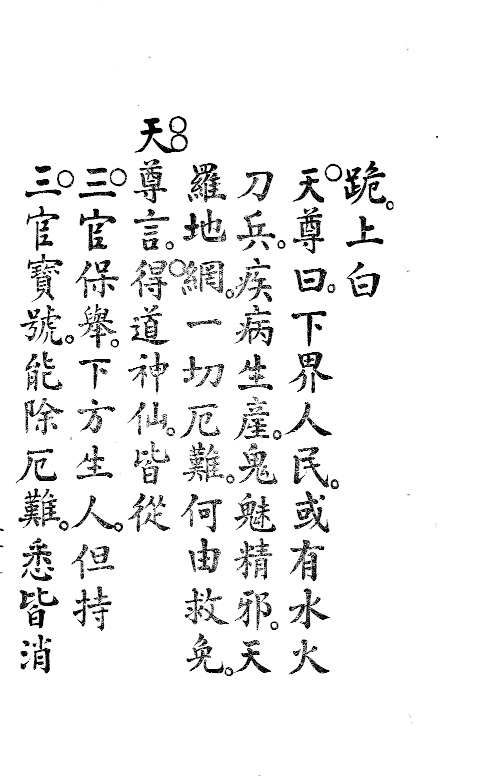 跪。上白
天尊曰。下界人民。或有水火
刀兵。疾病生產。鬼魅精邪。天
羅地網。一切厄難。何由救免。
天尊言。得道神仙。皆從
三官保舉。下方生人。但持
三官寶號。能除厄難。悉皆消